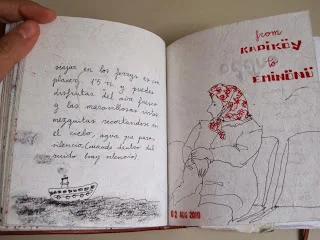 viajar en los ferrys es un
placer. 1'5 TL y puedes
disfrutas del aire fresco
y las maravillosas vistas
mezquitas recortandose en
el cielo, agua que pasa,
silencio (cuando dentro del
ruido hay silencio)
from
KADIKÖY
to
EMINÖNÜ
02 AUG 2010